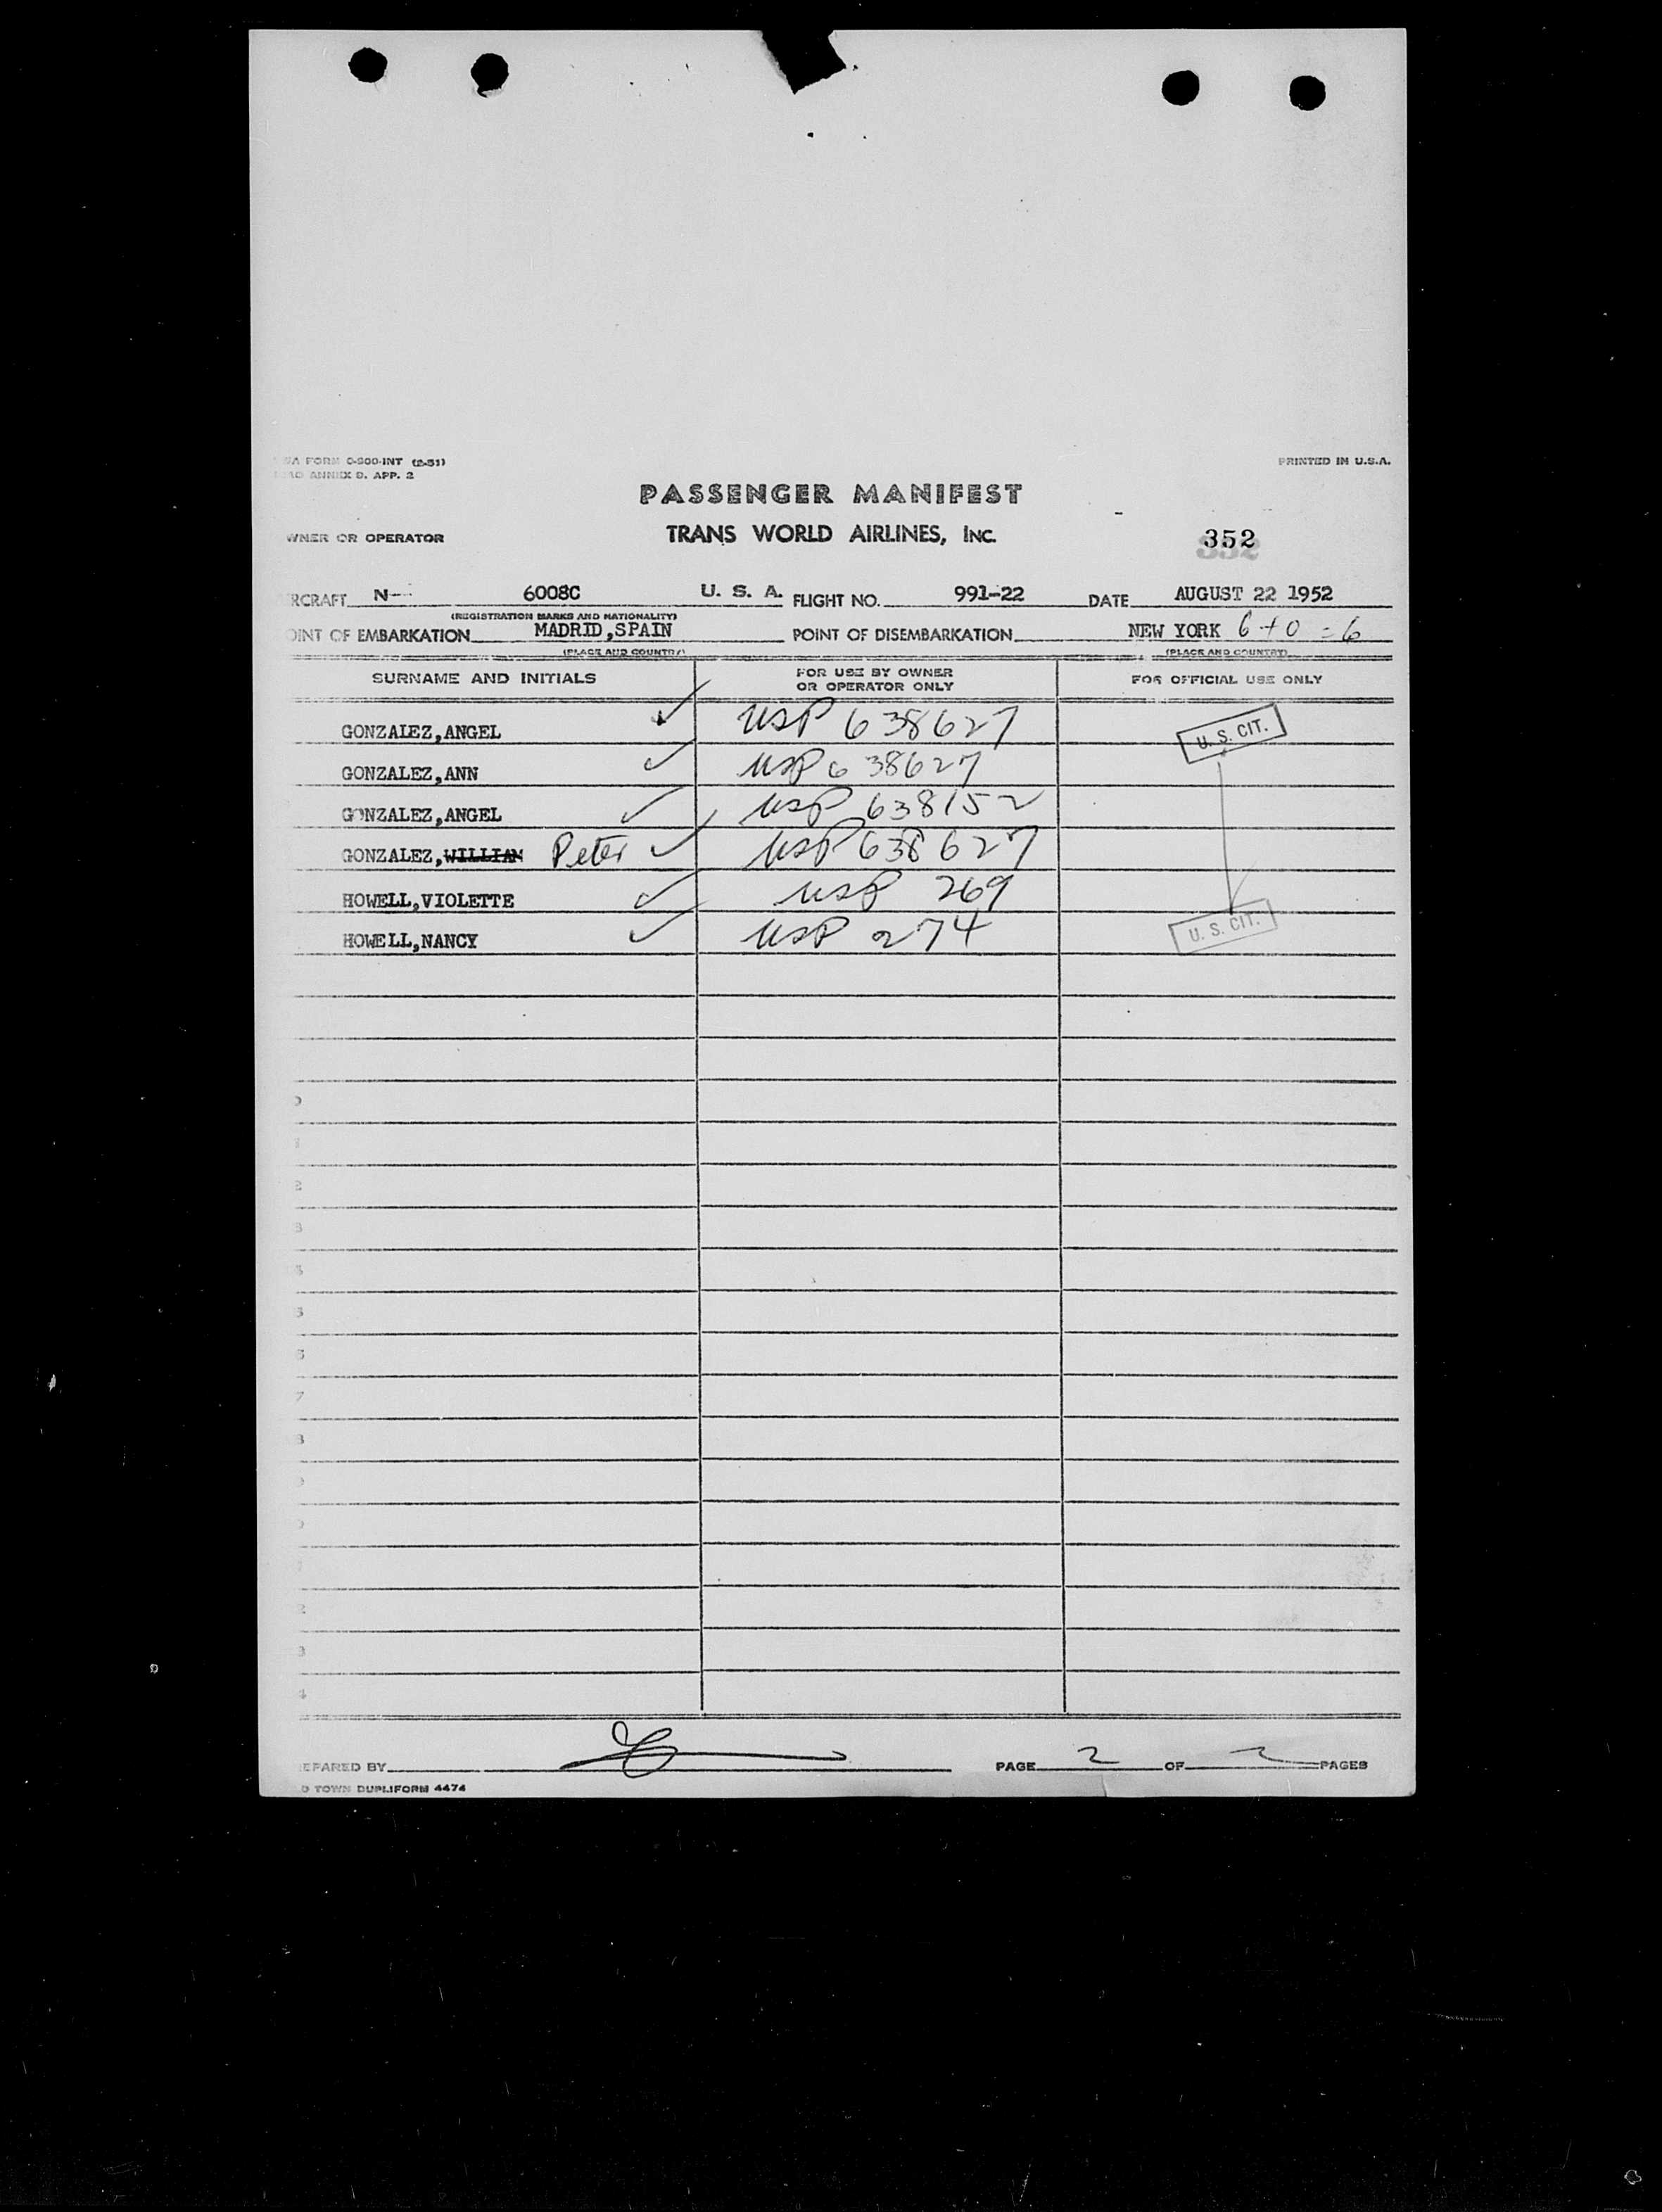 WA FORM O-500-INT (2-51)
ANNEX 9. APP. 2
PRINTED IN U.S.A.
PASSENGER MANIFEST
WNER OR OPERATOR TRANS WORLD AIRLINES, INC. 352
RCRAFT N- 6008C U. S. A. FLIGHT NO. 991-22 DATE AUGUST 22 1952
(REGISTRATION MARKS AND NATIONALITY)
OINT OF EMBARKATION MADRID,SPAIN POINT OF DISEMBARKATION NEW YORK 6+0=6
(PLACE AND COUNTRY) (PLACE AND COUNTRY)
SURNAME AND INITIALS FOR USE BY OWNER OR OPERATOR ONLY FOR OFFICIAL USE ONLY
GONZALEZ,ANGEL USP 638627 U. S. CIT.
GONZALEZ,ANN USP 638627
GONZALEZ,ANGEL USP 638152
GONZALEZ,WILLIAM Peter USP 638627
HOWELL,VIOLETTE USP 269
HOWELL,NANCY USP 274 U. S. CIT.
EPARED BY PAGE 2 OF 2 PAGES
D TOWN DUPLIFORM 4474